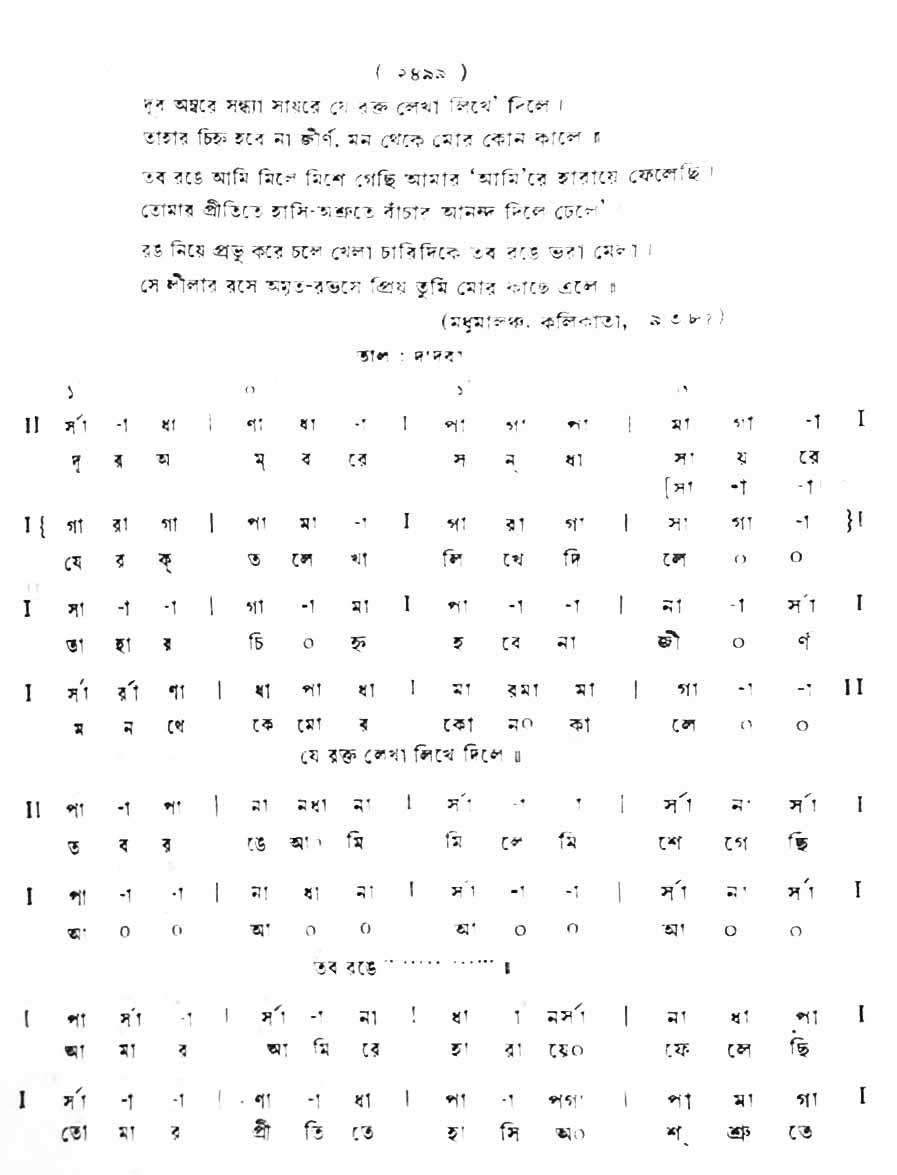 ( ২৪৯৯ )
দূর অম্বরে সন্ধ্যা সায়রে যে রক্ত লেখা লিখে' দিলে ।
তাহার চিহ্ন হবে না জীর্ণ, মন থেকে মোর কোন কালে ॥
তব রঙে আমি মিলে মিশে গেছি আমার 'আমি'রে হারায়ে ফেলেছি ।
তোমার প্রীতিতে হাসি-অশ্রুতে বাঁচার আনন্দ দিলে ঢেলে'
রঙ নিয়ে প্রভু করে চলে খেলা চারিদিকে তব রঙে ভরা মেলা ।
সে লীলার রসে অমৃত-রভসে প্রিয় তুমি মোর কাছে এলে ॥
(মধুমালঞ্চ, কলিকাতা,
তাল : দাদরা
১ ০ ১ ০
II র্সা -া ধা | ণা ধা -া I পা গা পা | মা গা -া I
দূ র অ ম্ ব রে স ন্ ধা সা য় রে
[সা -া -া
I { গা রা গা | পা মা -া I পা রা গা | সা গা -া } I
যে র ক্ ত লে খা লি খে দি লে ০ ০
I সা -া -া | গা -া মা I পা -া -া | না -া র্সা I
তা হা র চি ০ হ্ন হ বে না জী ০ র্ণ
I র্সা র্রা ণা | ধা পা ধা I মা রমা মা | গা -া -া II
ম ন থে কে মো র কো ন০ কা লে ০ ০
যে রক্ত লেখা লিখে দিলে ॥
II পা -া পা | না নধা না I র্সা -া া | র্সা না র্সা I
ত ব র ঙে আ০ মি মি লে মি শে গে ছি
I পা -া -া | না ধা না I র্সা -া -া | র্সা না র্সা I
আ ০ ০ আ ০ ০ আ ০ ০ আ ০ ০
তব রঙে ·················· ॥
I পা র্সা -া | র্সা -া না I ধা া নর্সা | না ধা পা I
আ মা র আ মি রে হা রা য়ে০ ফে লে ছি
I র্সা -া -া | ণা -া ধা I পা -া পগা | পা মা গা I
তো মা র প্রী তি তে হা সি অ০ শ্ শ্রু তে